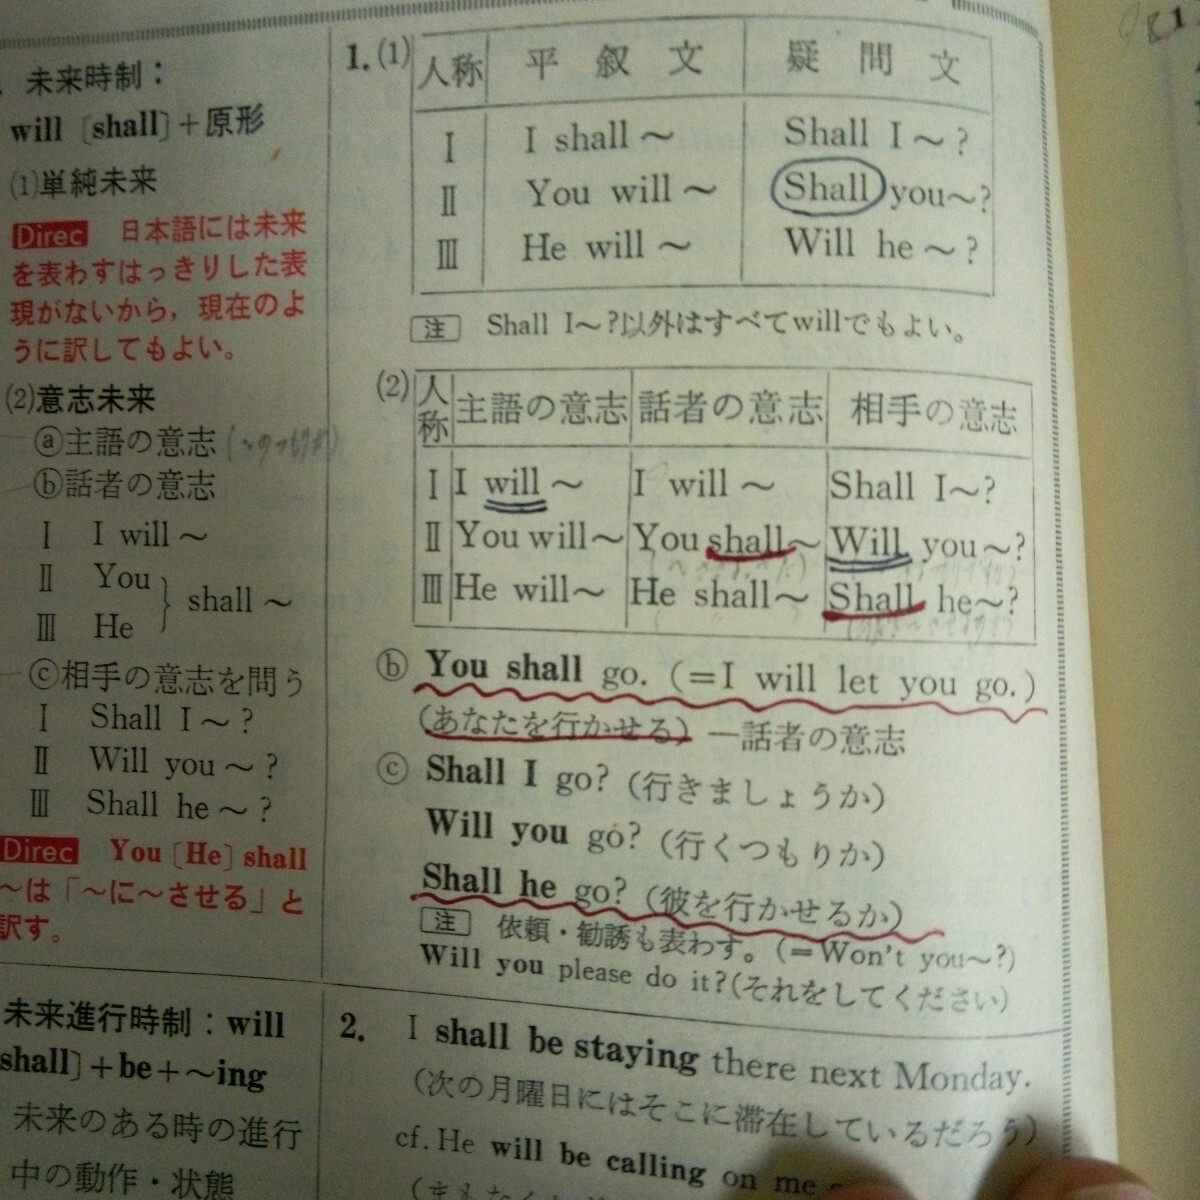 未来時制：
will〔shall〕＋原形
(1)単純未来
Direc 日本語には未来
を表わすはっきりした表
現がないから，現在のよ
うに訳してもよい。
(2)意志未来
ⓐ主語の意志
ⓑ話者の意志
Ⅰ I will ～
Ⅱ You
Ⅲ He
} shall ～
ⓒ相手の意志を問う
Ⅰ Shall I ～ ?
Ⅱ Will you ～ ?
Ⅲ Shall he ～ ?
Direc You〔He〕shall
～は「～に～させる」と
訳す。
未来進行時制：will
shall〕＋be＋～ing
未来のある時の進行
中の動作・状態
1. (1)
人称 平叙文 疑問文
Ⅰ I shall ～ Shall I ～ ?
Ⅱ You will ～ Shall you～?
Ⅲ He will ～ Will he ～ ?
注 Shall I～?以外はすべてwillでもよい。
(2)
人称 主語の意志 話者の意志 相手の意志
Ⅰ I will ～ I will ～ Shall I～?
Ⅱ You will～ You shall～ Will you～?
Ⅲ He will～ He shall～ Shall he～?
ⓑ You shall go. (＝I will let you go.)
(あなたを行かせる) ―話者の意志
ⓒ Shall I go? (行きましょうか)
Will you go? (行くつもりか)
Shall he go? (彼を行かせるか)
注 依頼・勧誘も表わす。(＝Won't you～?)
Will you please do it?(それをしてください)
2. I shall be staying there next Monday.
(次の月曜日にはそこに滞在しているだろう)
cf. He will be calling on me